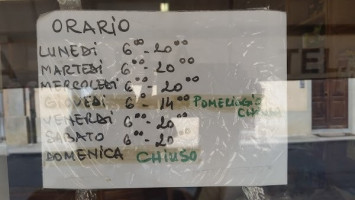 ORARIO
LUNEDI 6⁰⁰-20⁰⁰
MARTEDI 6⁰⁰-20⁰⁰
MERCOLEDI 6⁰⁰-20⁰⁰
GIOVEDI 6⁰⁰-14⁰⁰ POMERIGGIO CHIUSO
VENERDI 6⁰⁰-20⁰⁰
SABATO 6⁰⁰-20⁰⁰
DOMENICA CHIUSO